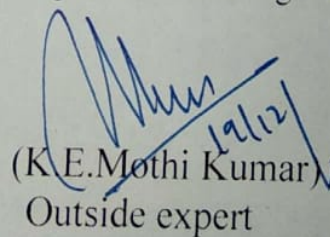 19/12/
(K.E.Mothi Kumar)
Outside expert